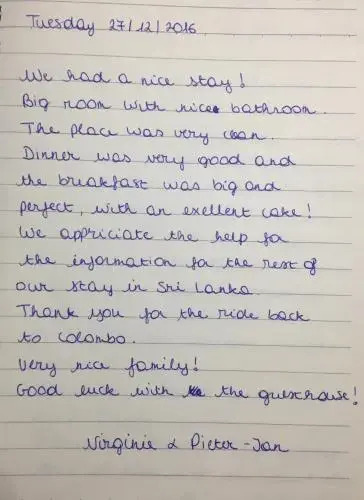 Tuesday 27/12/2016
We had a nice stay!
Big room with nice bathroom.
The place was very clean.
Dinner was very good and
the breakfast was big and
perfect, with an exellent cake!
We appriciate the help for
the information for the rest of
our stay in Sri Lanka.
Thank you for the ride back
to Colombo.
Very nice family!
Good luck with the guesthouse!
Virginie & Pieter-Jan